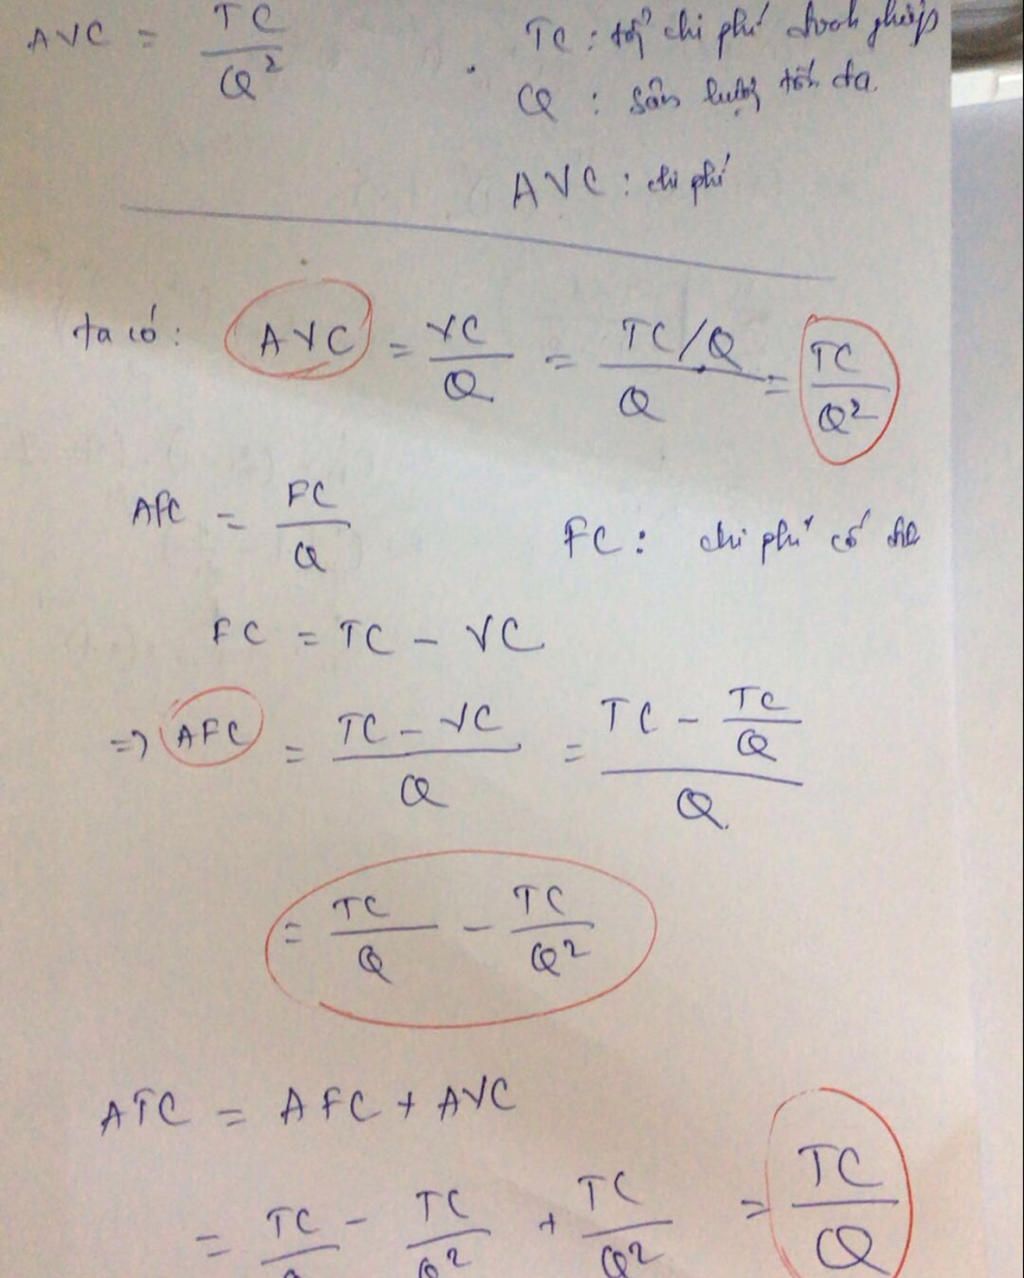 AVC = TC / Q²
TC : tổng chi phí doanh nghiệp
Q : sản lượng tối đa.
AVC : chi phí
ta có : AVC = VC / Q = TC/Q / Q = TC / Q²
AFC = FC / Q
FC : chi phí cố
FC = TC - VC
=> AFC = TC - VC / Q = TC - TC / Q / Q
= TC / Q - TC / Q²
ATC = AFC + AVC
= TC / Q - TC / Q² + TC / Q² = TC / Q